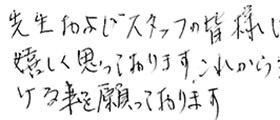 先生およびスタッフの皆様に
嬉しく思っております。これから
ける事を願っております